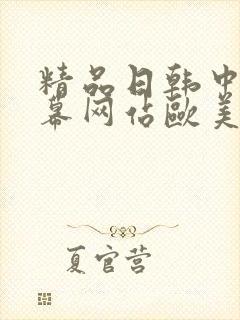 精品日韩中
幕网佔歐美
夏官营